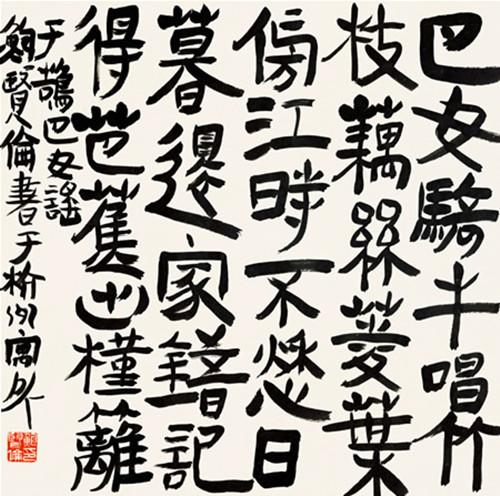 巴女騎牛唱竹
枝藕絲菱葉
傍江時不愁日
暮還家錯記
得芭蕉出槿籬
于鵠巴女謡
鮑賢倫書于杭州寓